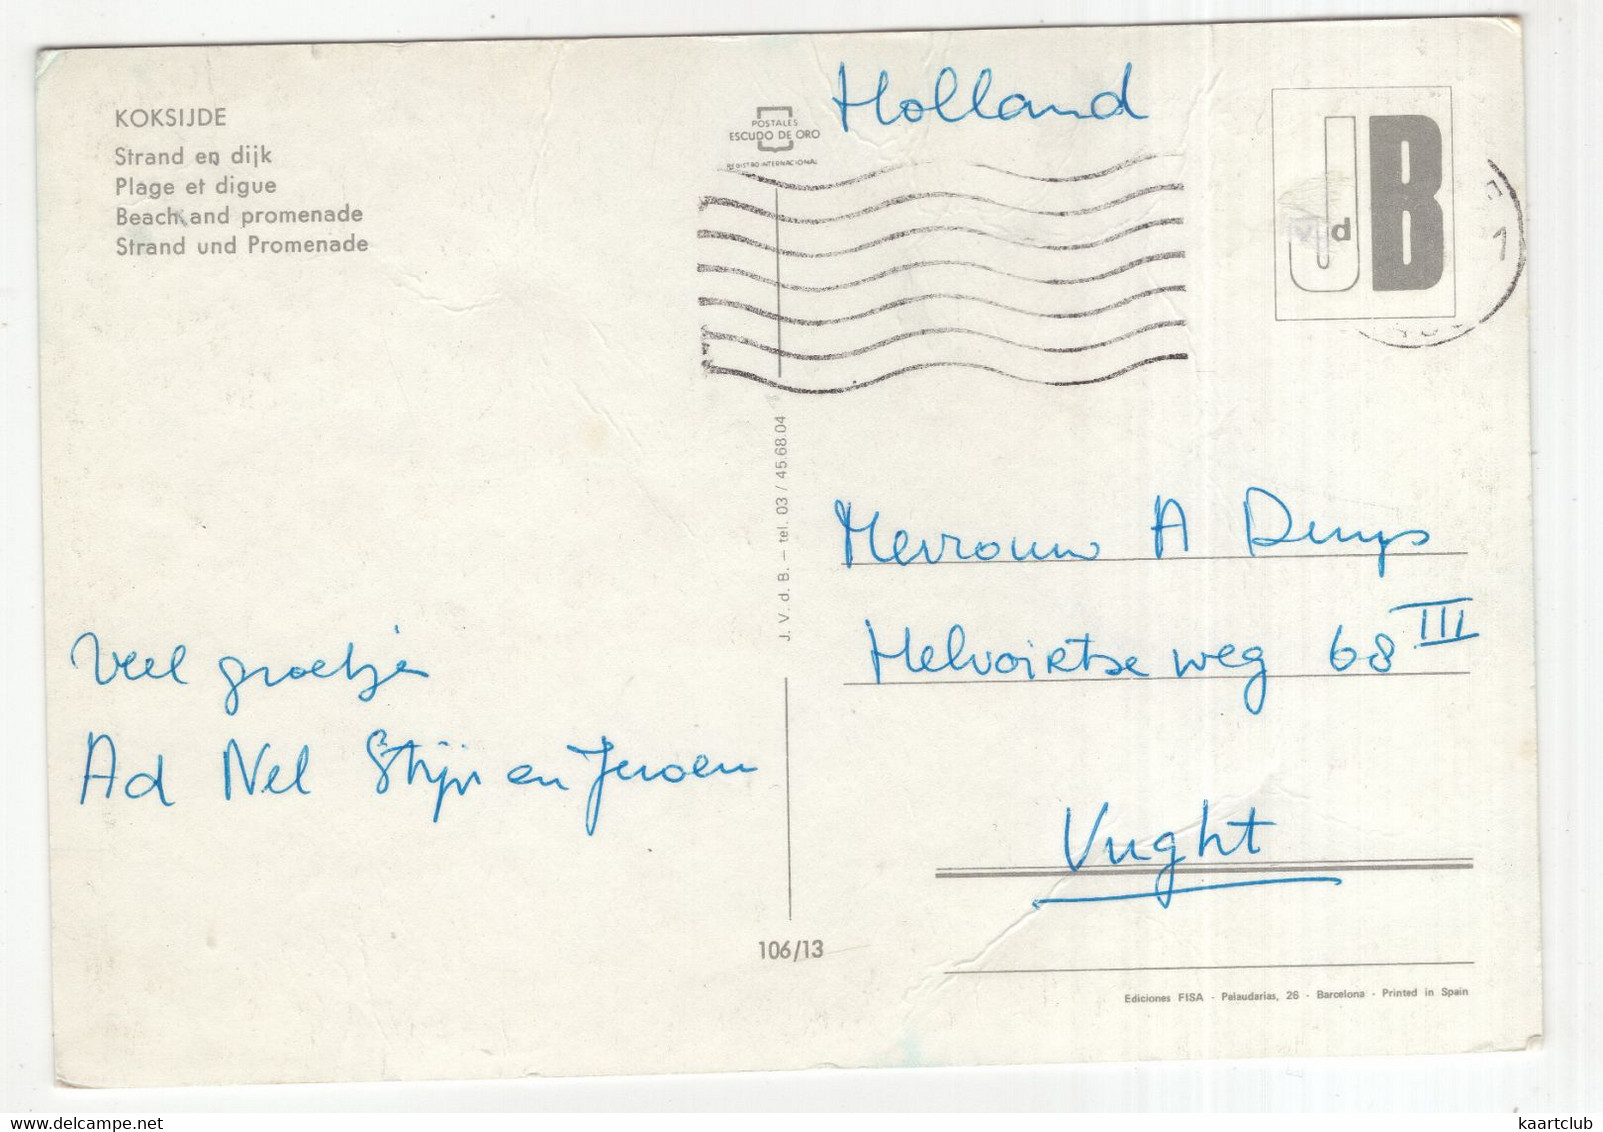 KOKSIJDE
Strand en dijk
Plage et digue
Beach and promenade
Strand und Promenade
POSTALES
ESCUDO DE ORO
REGISTRO INTERNACIONAL
Holland
JVdB
1
J. V. d. B. – tel. 03 / 45.68.04
Mevrouw A Duys
Helvoirtseweg 68 III
Vught
Veel groetjes
Ad Nel Stijn en Jeroen
106/13
Ediciones FISA - Palaudarias, 26 - Barcelona - Printed in Spain
www.delcampe.net
kaartclub